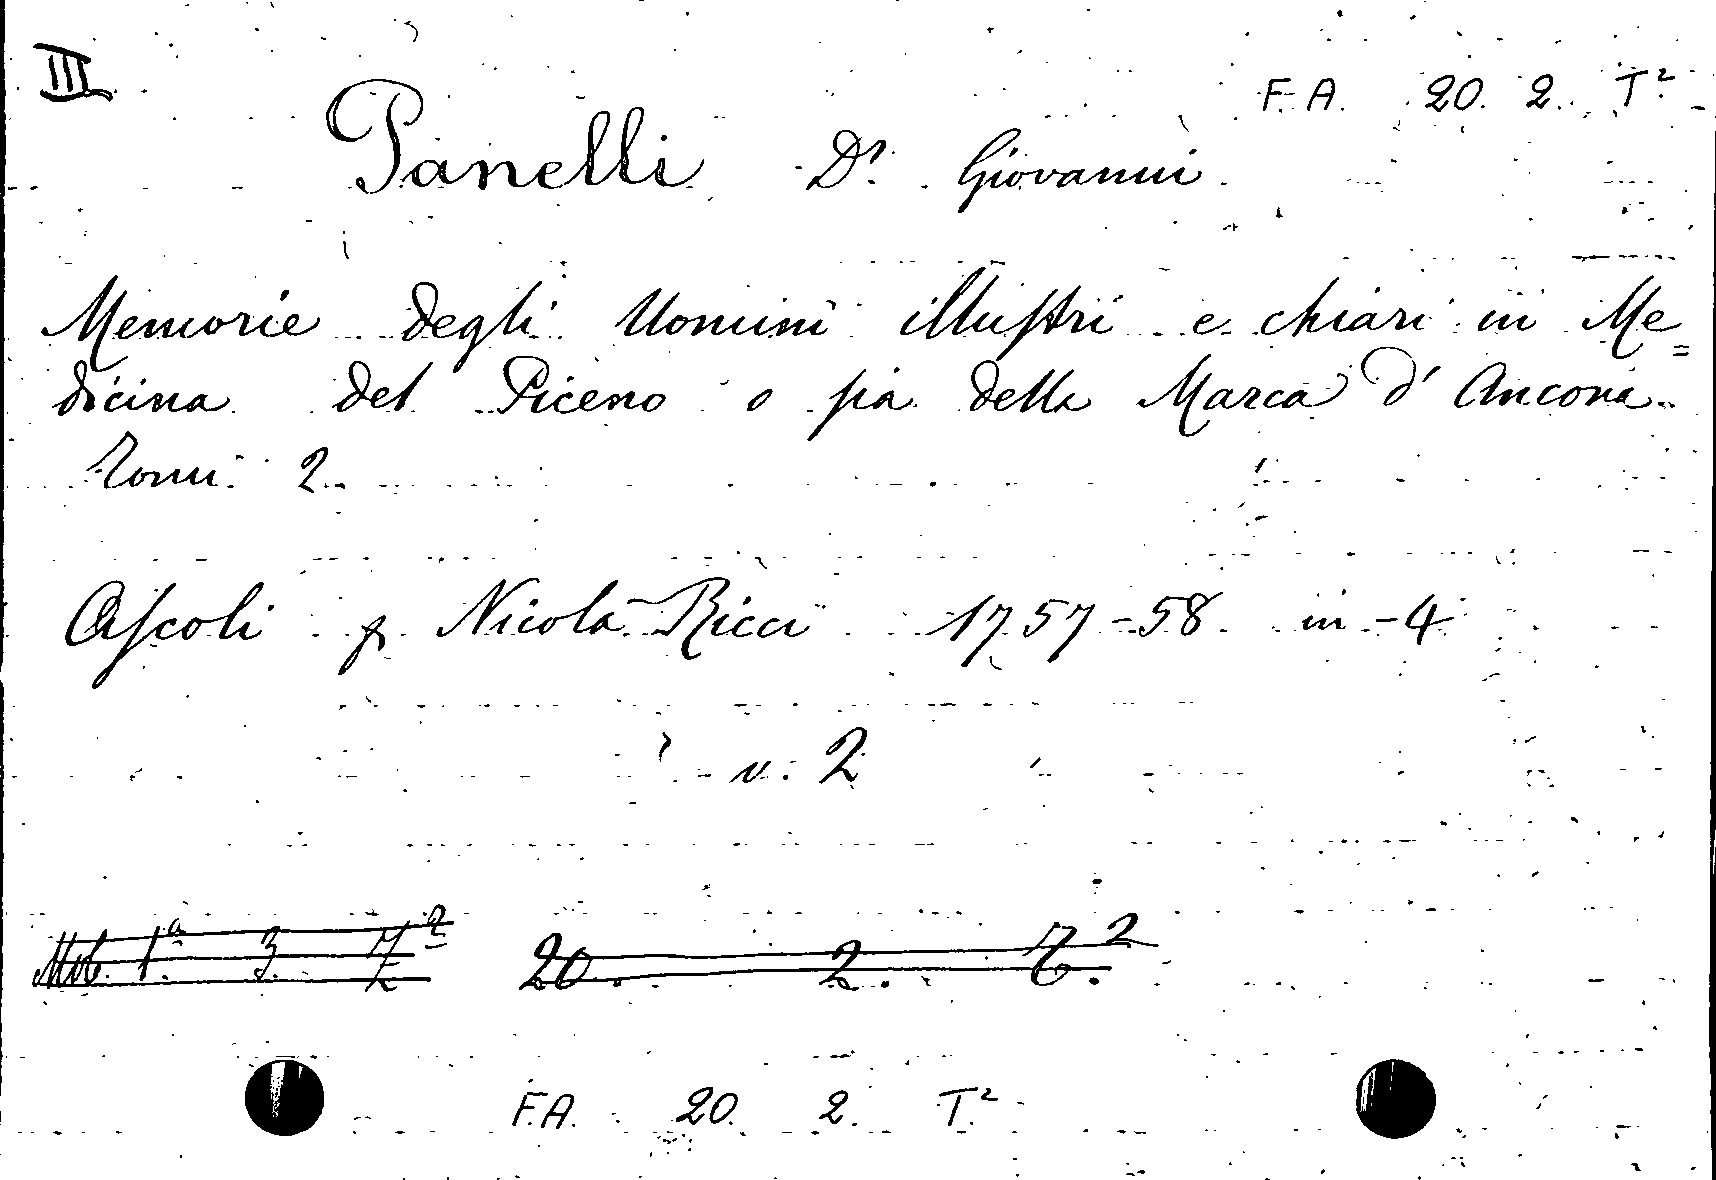 III
F. A. 20. 2. T²
Panelli Dr. Giovanni
Memorie degli Uomini illustri e chiari in Me=
dicina del Piceno o sia della Marca d' Ancona.
Tomi 2.
Ascoli p. Nicola Ricci 1757-58 in-4
v. 2
20. 2. T.²
F.A. 20. 2. T²